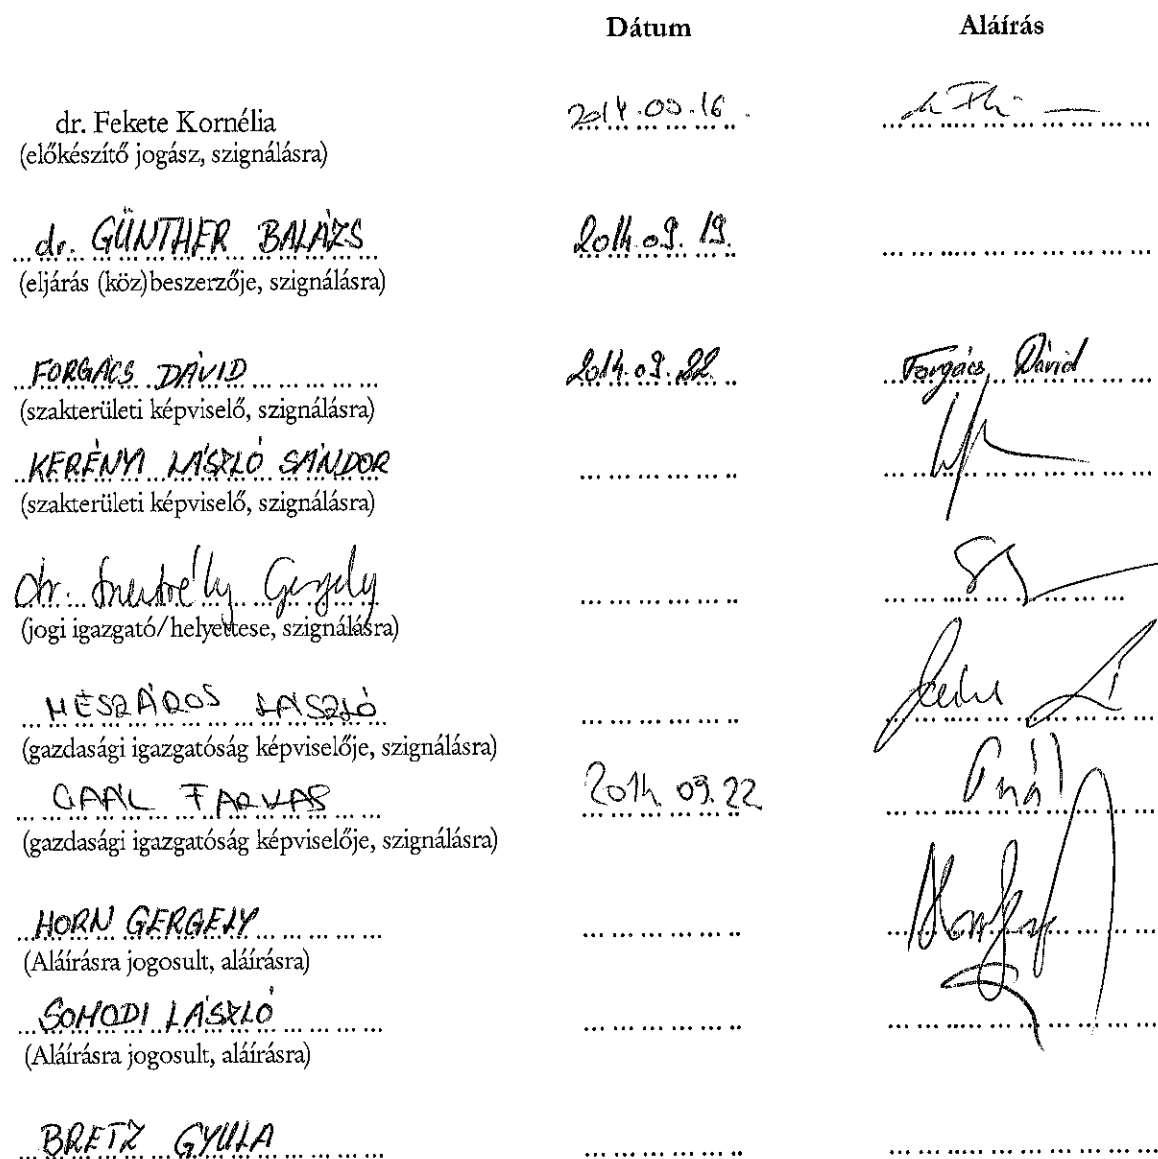 Dátum Aláírás
dr. Fekete Kornélia 2014.09.16.
(előkészítő jogász, szignálásra)
dr. GÜNTHER BALÁZS 2014.09.19.
(eljárás (köz)beszerzője, szignálásra)
FORGÁCS DÁVID 2014.09.22. Forgács Dávid
(szakterületi képviselő, szignálásra)
KERÉNYI LÁSZLÓ SÁNDOR
(szakterületi képviselő, szignálásra)
dr. Gergely
(jogi igazgató/helyettese, szignálásra)
MÉSZÁROS LÁSZLÓ
(gazdasági igazgatóság képviselője, szignálásra)
GAÁL FARKAS 2014.09.22 Gaál
(gazdasági igazgatóság képviselője, szignálásra)
HORN GERGELY
(Aláírásra jogosult, aláírásra)
SOMODI LÁSZLÓ
(Aláírásra jogosult, aláírásra)
BRETZ GYULA